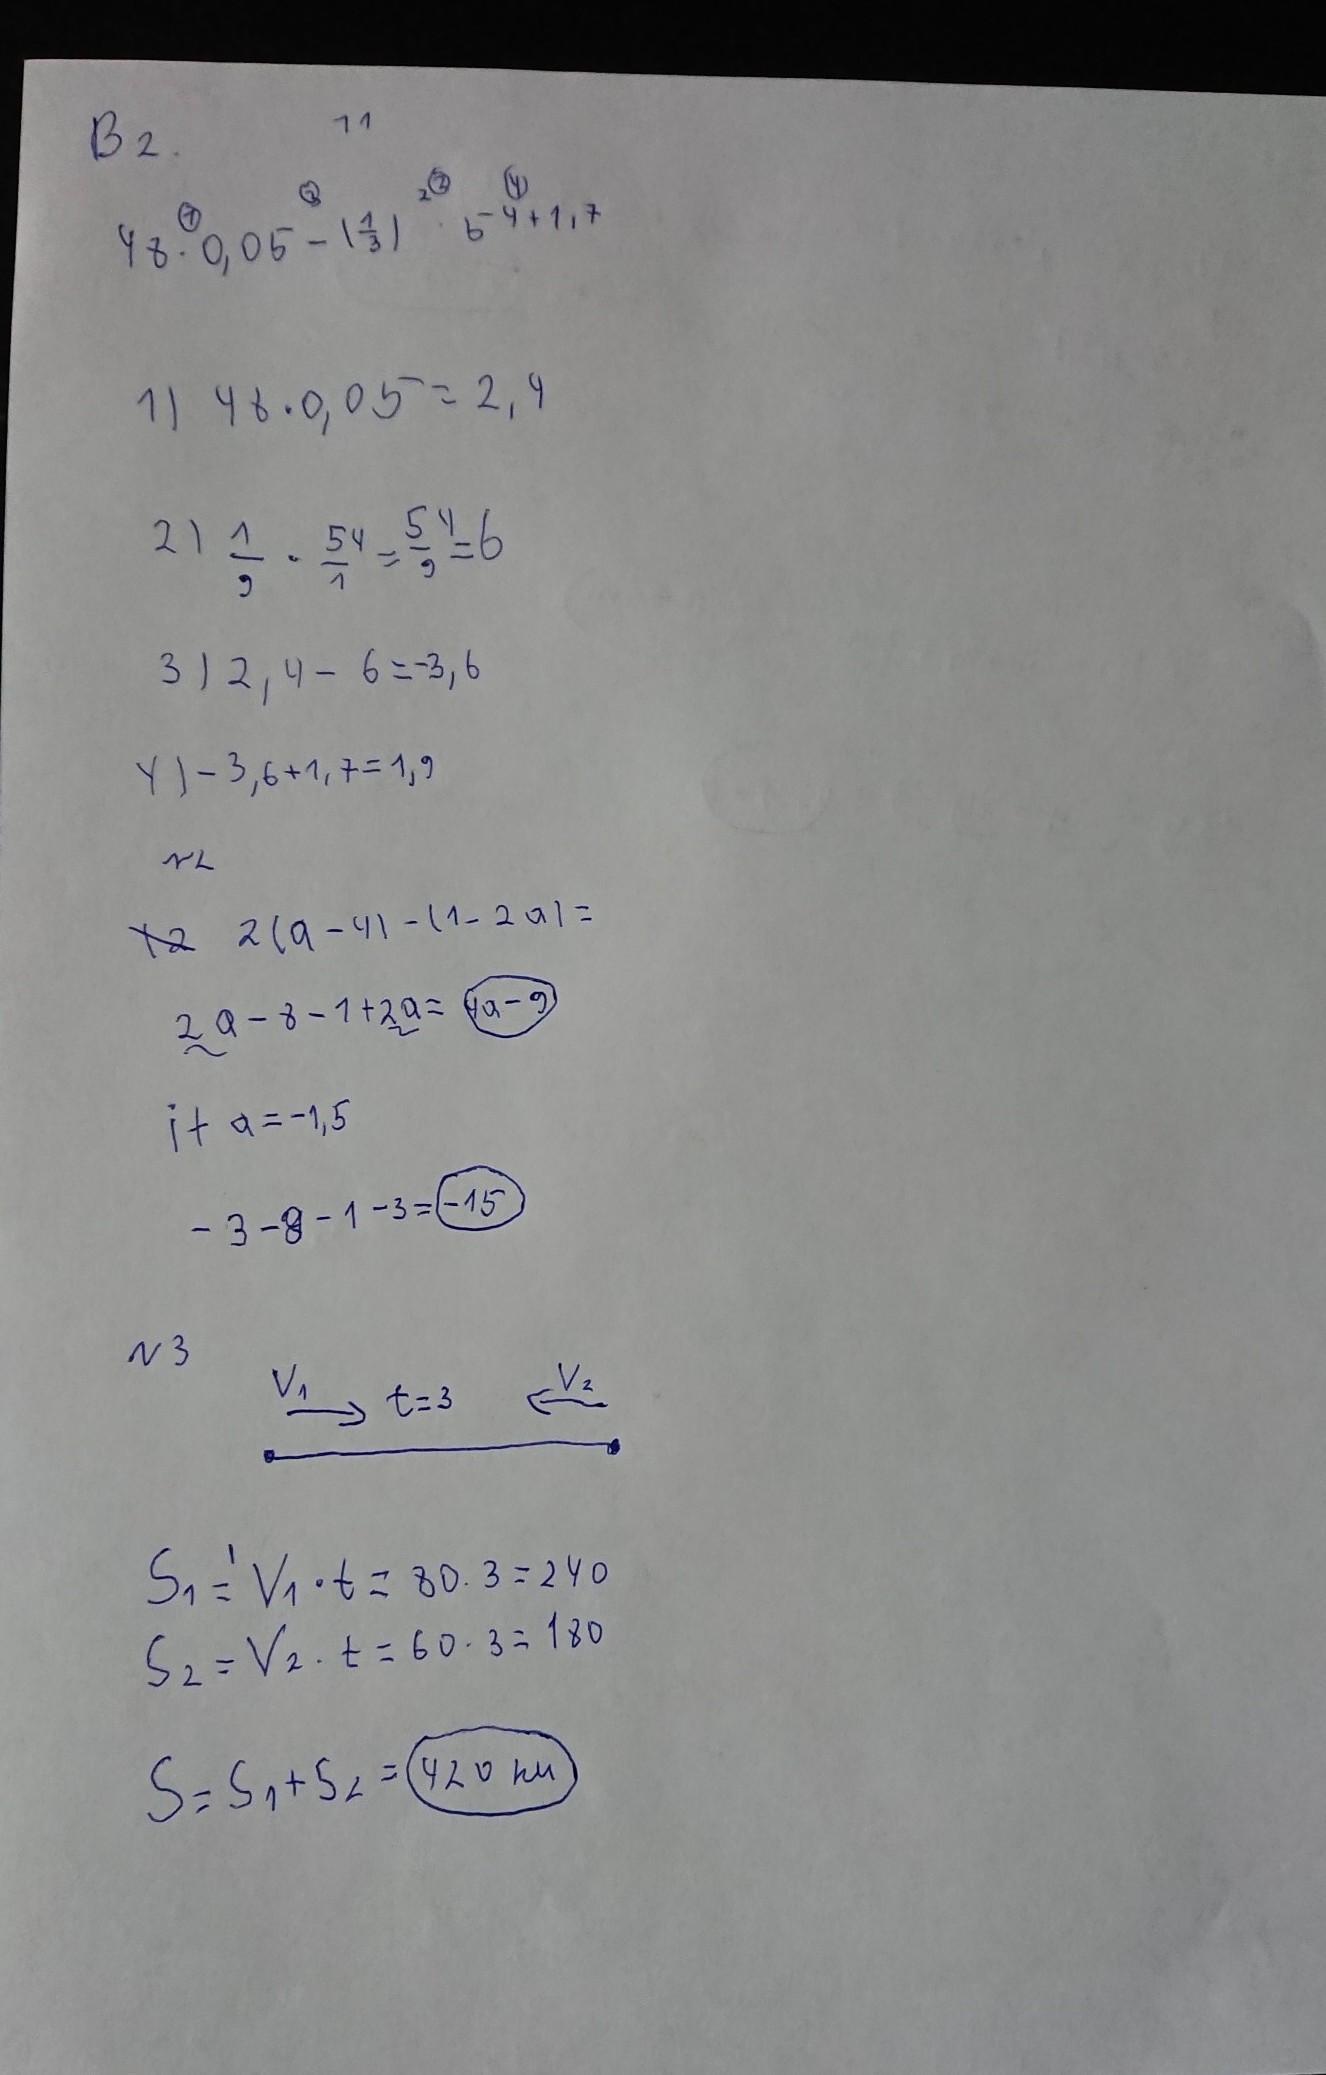 B2. 11
48 · 0,05 - (1/3)² · 54 + 1,7
1) 48 · 0,05 = 2,4
2) 1/9 · 54/1 = 54/9 = 6
3) 2,4 - 6 = -3,6
4) -3,6 + 1,7 = 1,9
N2
2(a - 4) - (1 - 2a) =
2a - 8 - 1 + 2a = 4a - 9
if a = -1,5
-3 - 8 - 1 - 3 = -15
N3
V₁ t = 3 V₂
S₁ = V₁ · t = 80 · 3 = 240
S₂ = V₂ · t = 60 · 3 = 180
S = S₁ + S₂ = 420 км